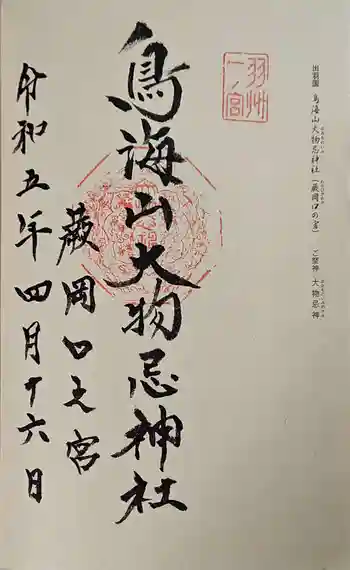 出羽國 鳥海山大物忌神社（蕨岡口の宮） ご祭神 大物忌神
羽州一ノ宮
鳥海山大物忌神社
蕨岡口之宮
令和五年四月十六日